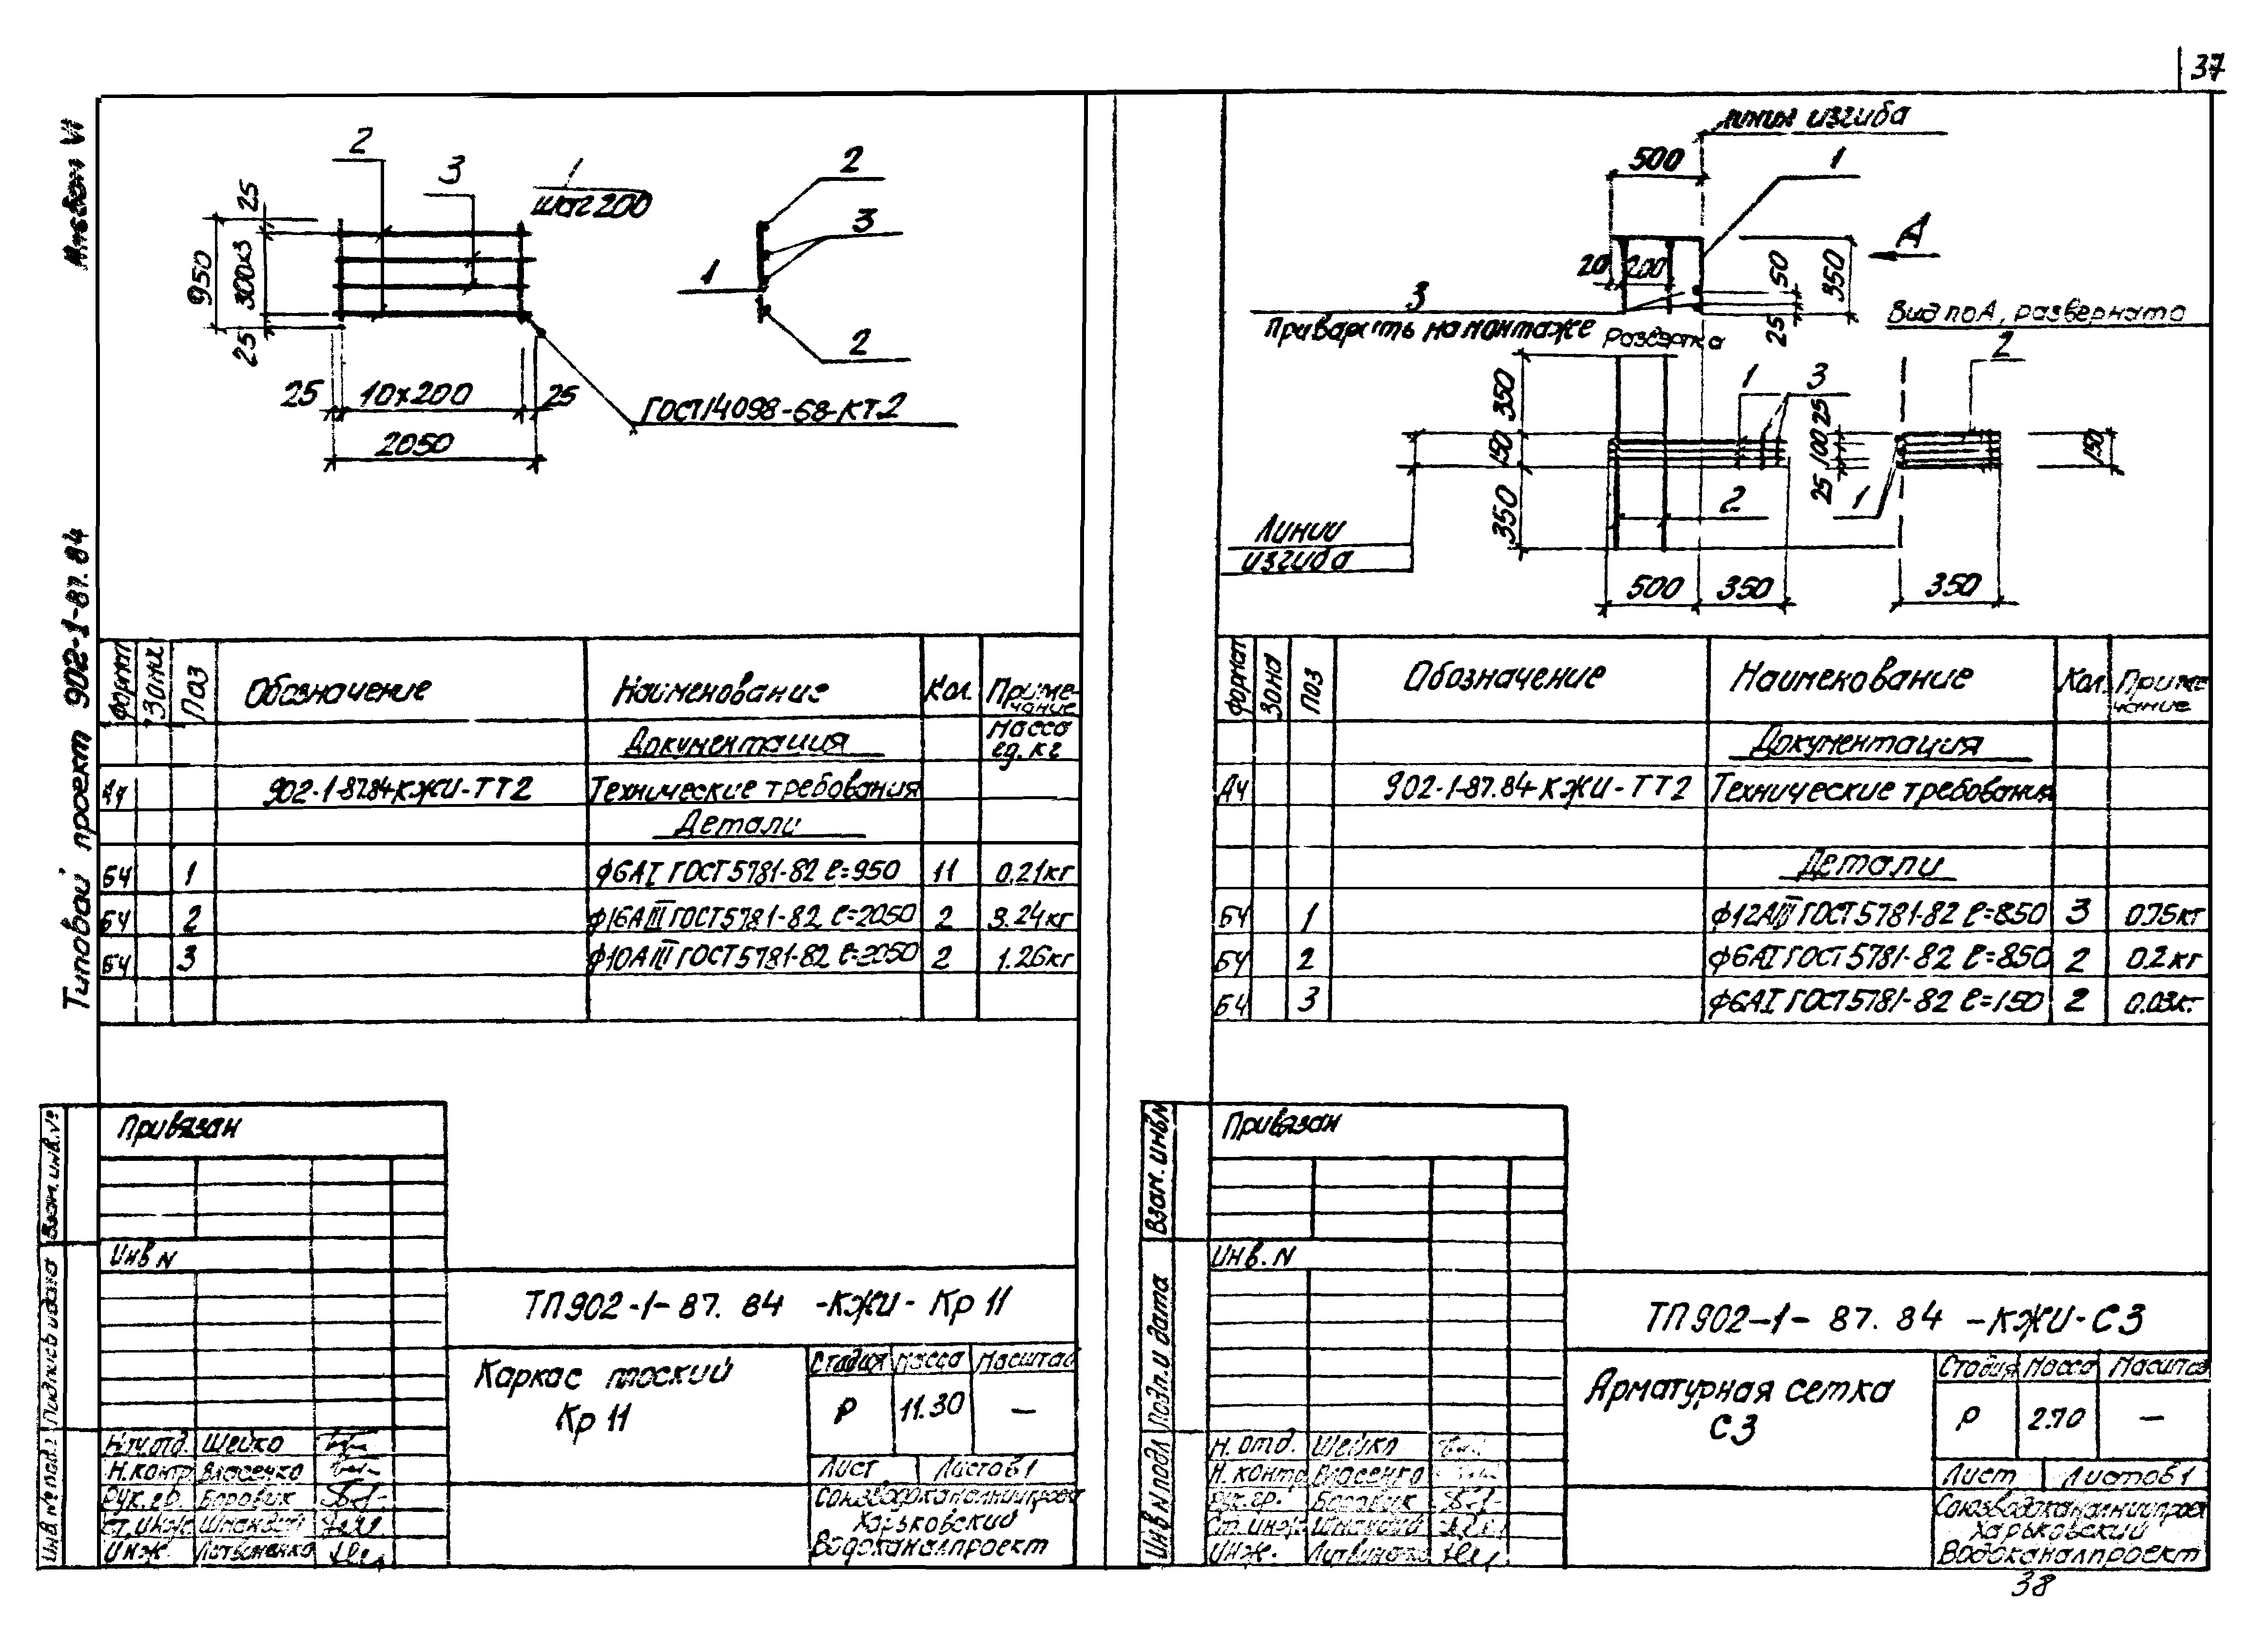 37
Альбом VI
Типовой проект 902-1-87.84
2
3
1
шаг 200
25
950
300×3
25
25
10×200
25
2050
ГОСТ14098-68-КТ2
2
3
1
2
Формат
Зона
Поз
Обозначение
Наименование
Кол.
Приме-
чание
Документация
Масса
ед. кг
А4
902-1-87.84-КЖИ-ТТ2
Технические требования
Детали
БЧ 1 ф6АI ГОСТ 5781-82 ℓ=950 11 0.21кг
БЧ 2 ф16АIII ГОСТ 5781-82 ℓ=2050 2 3.24кг
БЧ 3 ф10АIII ГОСТ 5781-82 ℓ=2050 2 1.26кг
Привязан
Инв N
Взам. инв. №
Подпись и дата
Инв № подл
ТП902-1-87.84 -КЖИ- Кр 11
Каркас плоский
Кр 11
Стадия Масса Масштаб
Р 11.30 —
Лист Листов 1
Союзводоканалниипроект
Харьковский
Водоканалпроект
Нач.отд. Шейко
Н.контр. Власенко
Рук.гр. Боровик
Ст.инж.
Инж. Литвиненко
линия изгиба
500
1
А
20
200
50
350
25
3
Приварить на монтаже
Развертка
Вид по А, развернато
2
1
3
350
150
350
25
100
25
150
1
2
Линии
изгиба
500
350
350
Формат
Зона
Поз
Обозначение
Наименование
Кол.
Приме
чание
Документация
А4
902-1-87.84-КЖИ-ТТ2
Технические требования
Детали
БЧ 1 ф12АIII ГОСТ 5781-82 ℓ=850 3 0.75кг
БЧ 2 ф6АI ГОСТ 5781-82 ℓ=850 2 0.2кг
БЧ 3 ф6АI ГОСТ 5781-82 ℓ=150 2 0.03кг.
Привязан
Инв. N
Взам. инв N
Подп. и дата
Инв N подл
ТП902-1-87.84 -КЖИ-С3
Арматурная сетка
С3
Стадия Масса Масштаб
Р 2.70 —
Лист Листов 1
Союзводоканалниипроект
Харьковский
Водоканалпроект
Н. отд. Шейко
Н. контр Власенко
Рук.гр. Боровик
Ст. инж.
Инж. Литвиненко
38